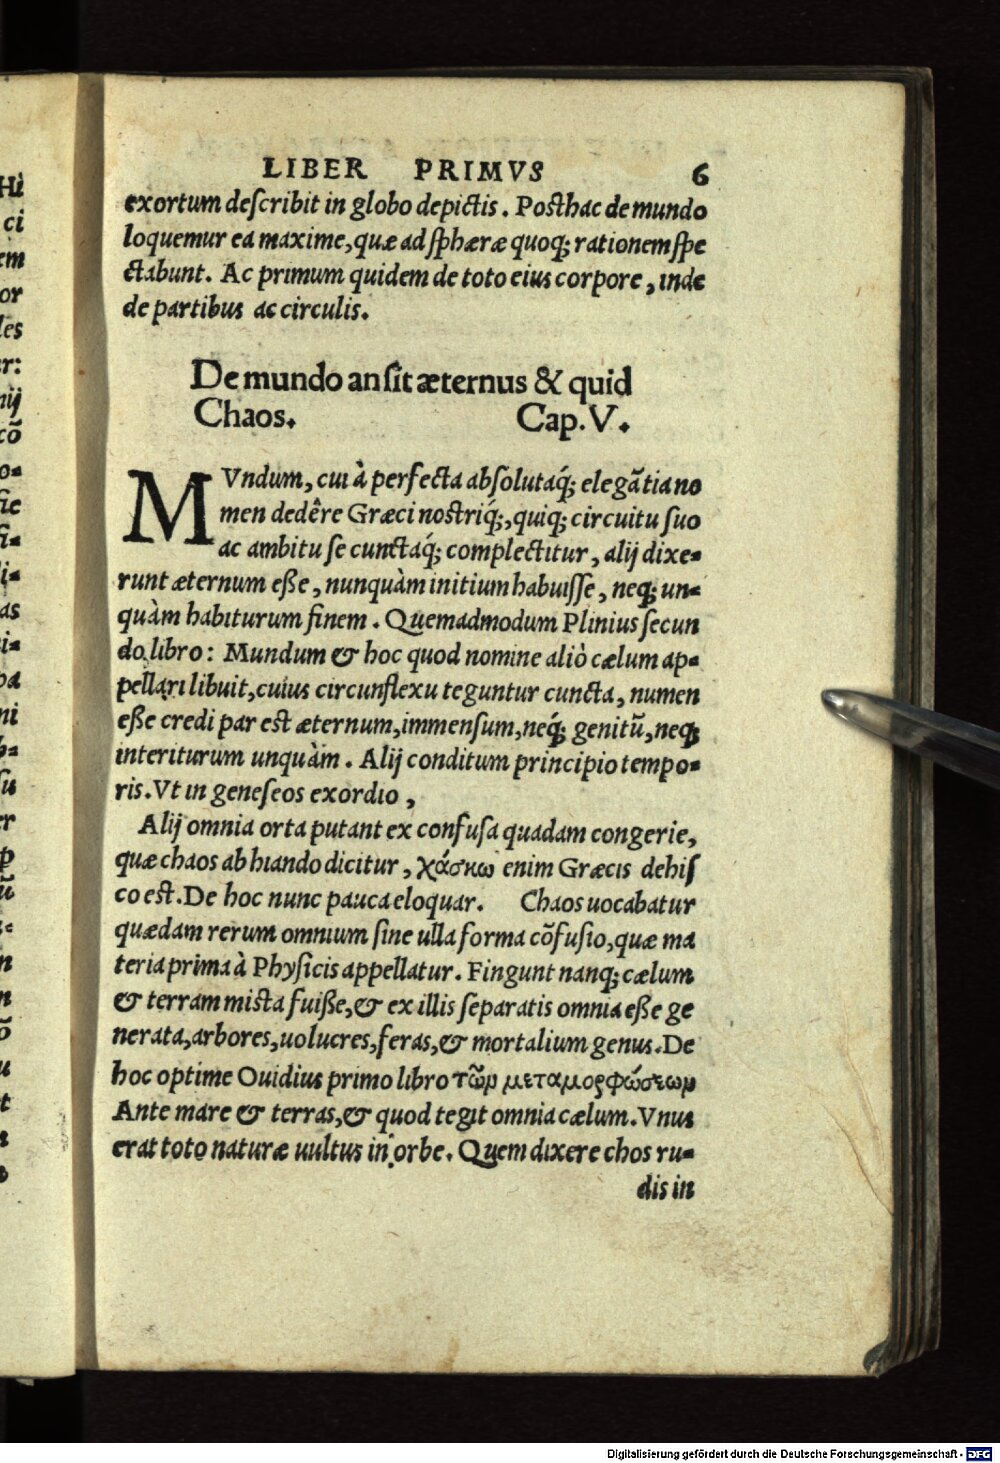 LIBER PRIMVS 6
exortum deſcribit in globo depictis. Posthac de mundo
loquemur ea maxime, quæ ad ſphæræ quoq; rationem ſpe
ctabunt. Ac primum quidem de toto eius corpore, inde
de partibus ac circulis.
De mundo an ſit æternus & quid
Chaos. Cap. V.
MVndum, cui à perfecta abſolutaq́; elegãtia no
men dedêre Græci nostriq́;, quiq; circuitu ſuo
ac ambitu ſe cunctaq́; complectitur, alij dixe-
runt æternum eße, nunquàm initium habuiſſe, neq; un-
quàm habiturum finem. Quemadmodum Plinius ſecun
do libro: Mundum & hoc quod nomine aliò cælum ap-
pellari libuit, cuius circunflexu teguntur cuncta, numen
eße credi par est æternum, immenſum, neq́; genitũ, neq;
interiturum unquàm. Alij conditum principio tempo-
ris. Vt in geneſeos exordio,
Alij omnia orta putant ex confuſa quadam congerie,
quæ chaos ab hiando dicitur, χάσκω enim Græcis dehiſ
co est. De hoc nunc pauca eloquar. Chaos uocabatur
quædam rerum omnium ſine ulla forma cõfuſio, quæ ma
teria prima à Phyſicis appellatur. Fingunt nanq; cælum
& terram mista fuiße, & ex illis ſeparatis omnia eße ge
nerata, arbores, uolucres, feras, & mortalium genus. De
hoc optime Ouidius primo libro τῶμ μεταμορφώσεωμ
Ante mare & terras, & quod tegit omnia cælum. Vnus
erat toto naturæ uultus in orbe. Quem dixere chos ru-
dis in
Hì
ci
em
or
les
r:
nij
cõ
o-
ſic
fi-
li-
as
i-
ni
b-
ſu
er
Digitalisierung gefördert durch die Deutsche Forschungsgemeinschaft - DFG